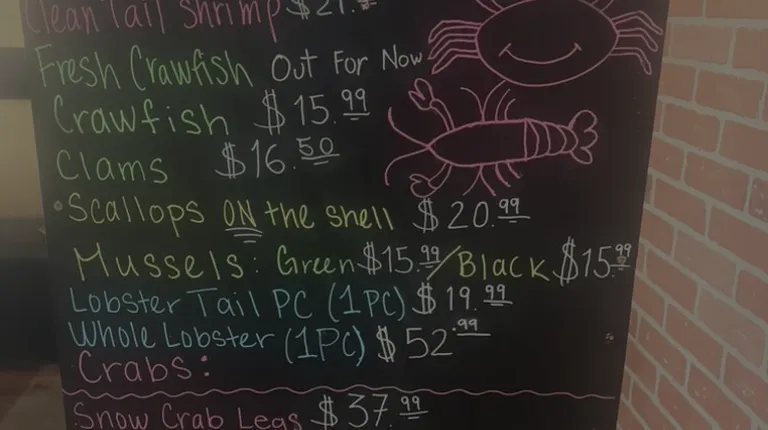 Clean Tail Shrimp $21.
Fresh Crawfish Out For Now
Crawfish $15.99
Clams $16.50
•Scallops ON the shell $20.99
Mussels: Green $15.99/Black $15.99
Lobster Tail PC (1PC) $19.99
Whole Lobster (1PC) $52.99
Crabs:
Snow Crab Legs $37.99